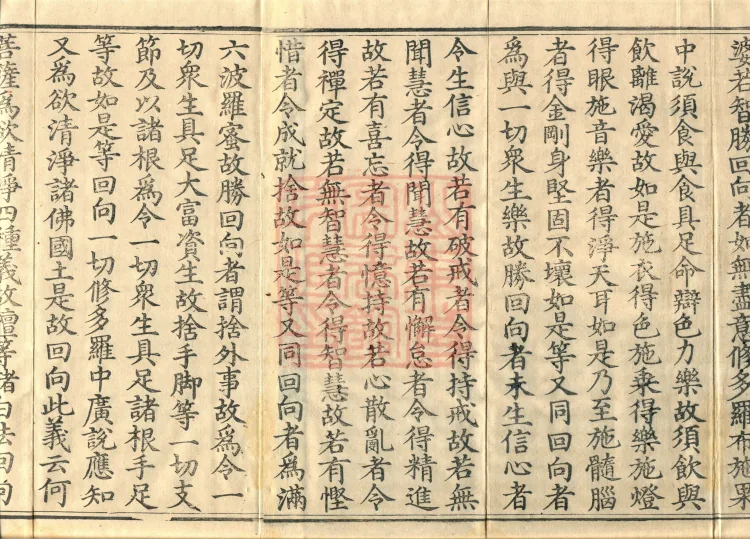 婆若智勝回向者如無盡意修多羅布施果
中說須食與食具足命辯色力樂故須飲與
飲離渴愛故如是施衣得色施乗得樂施燈
得眼施音樂者得淨天耳如是乃至施髓腦
者得金剛身堅固不壞如是等又同回向者
為與一切衆生樂故勝回向者未生信心者
令生信心故若有破戒者令得持戒故若無
聞慧者令得聞慧故若有懈怠者令得精進
故若有喜忘者令得憶持故若心散亂者令
得禪定故若無智慧者令得智慧故若有慳
惜者令成就捨故如是等又同回向者為滿
六波羅蜜故勝回向者謂捨外事故為令一
切衆生具足大富資生故捨手脚等一切支
節及以諸根為令一切衆生具足諸根手足
等故如是等回向一切修多羅中廣說應知
又為欲清淨諸佛國土是故回向此義云何
菩薩為欲清淨四種義故檀等諸白法回向